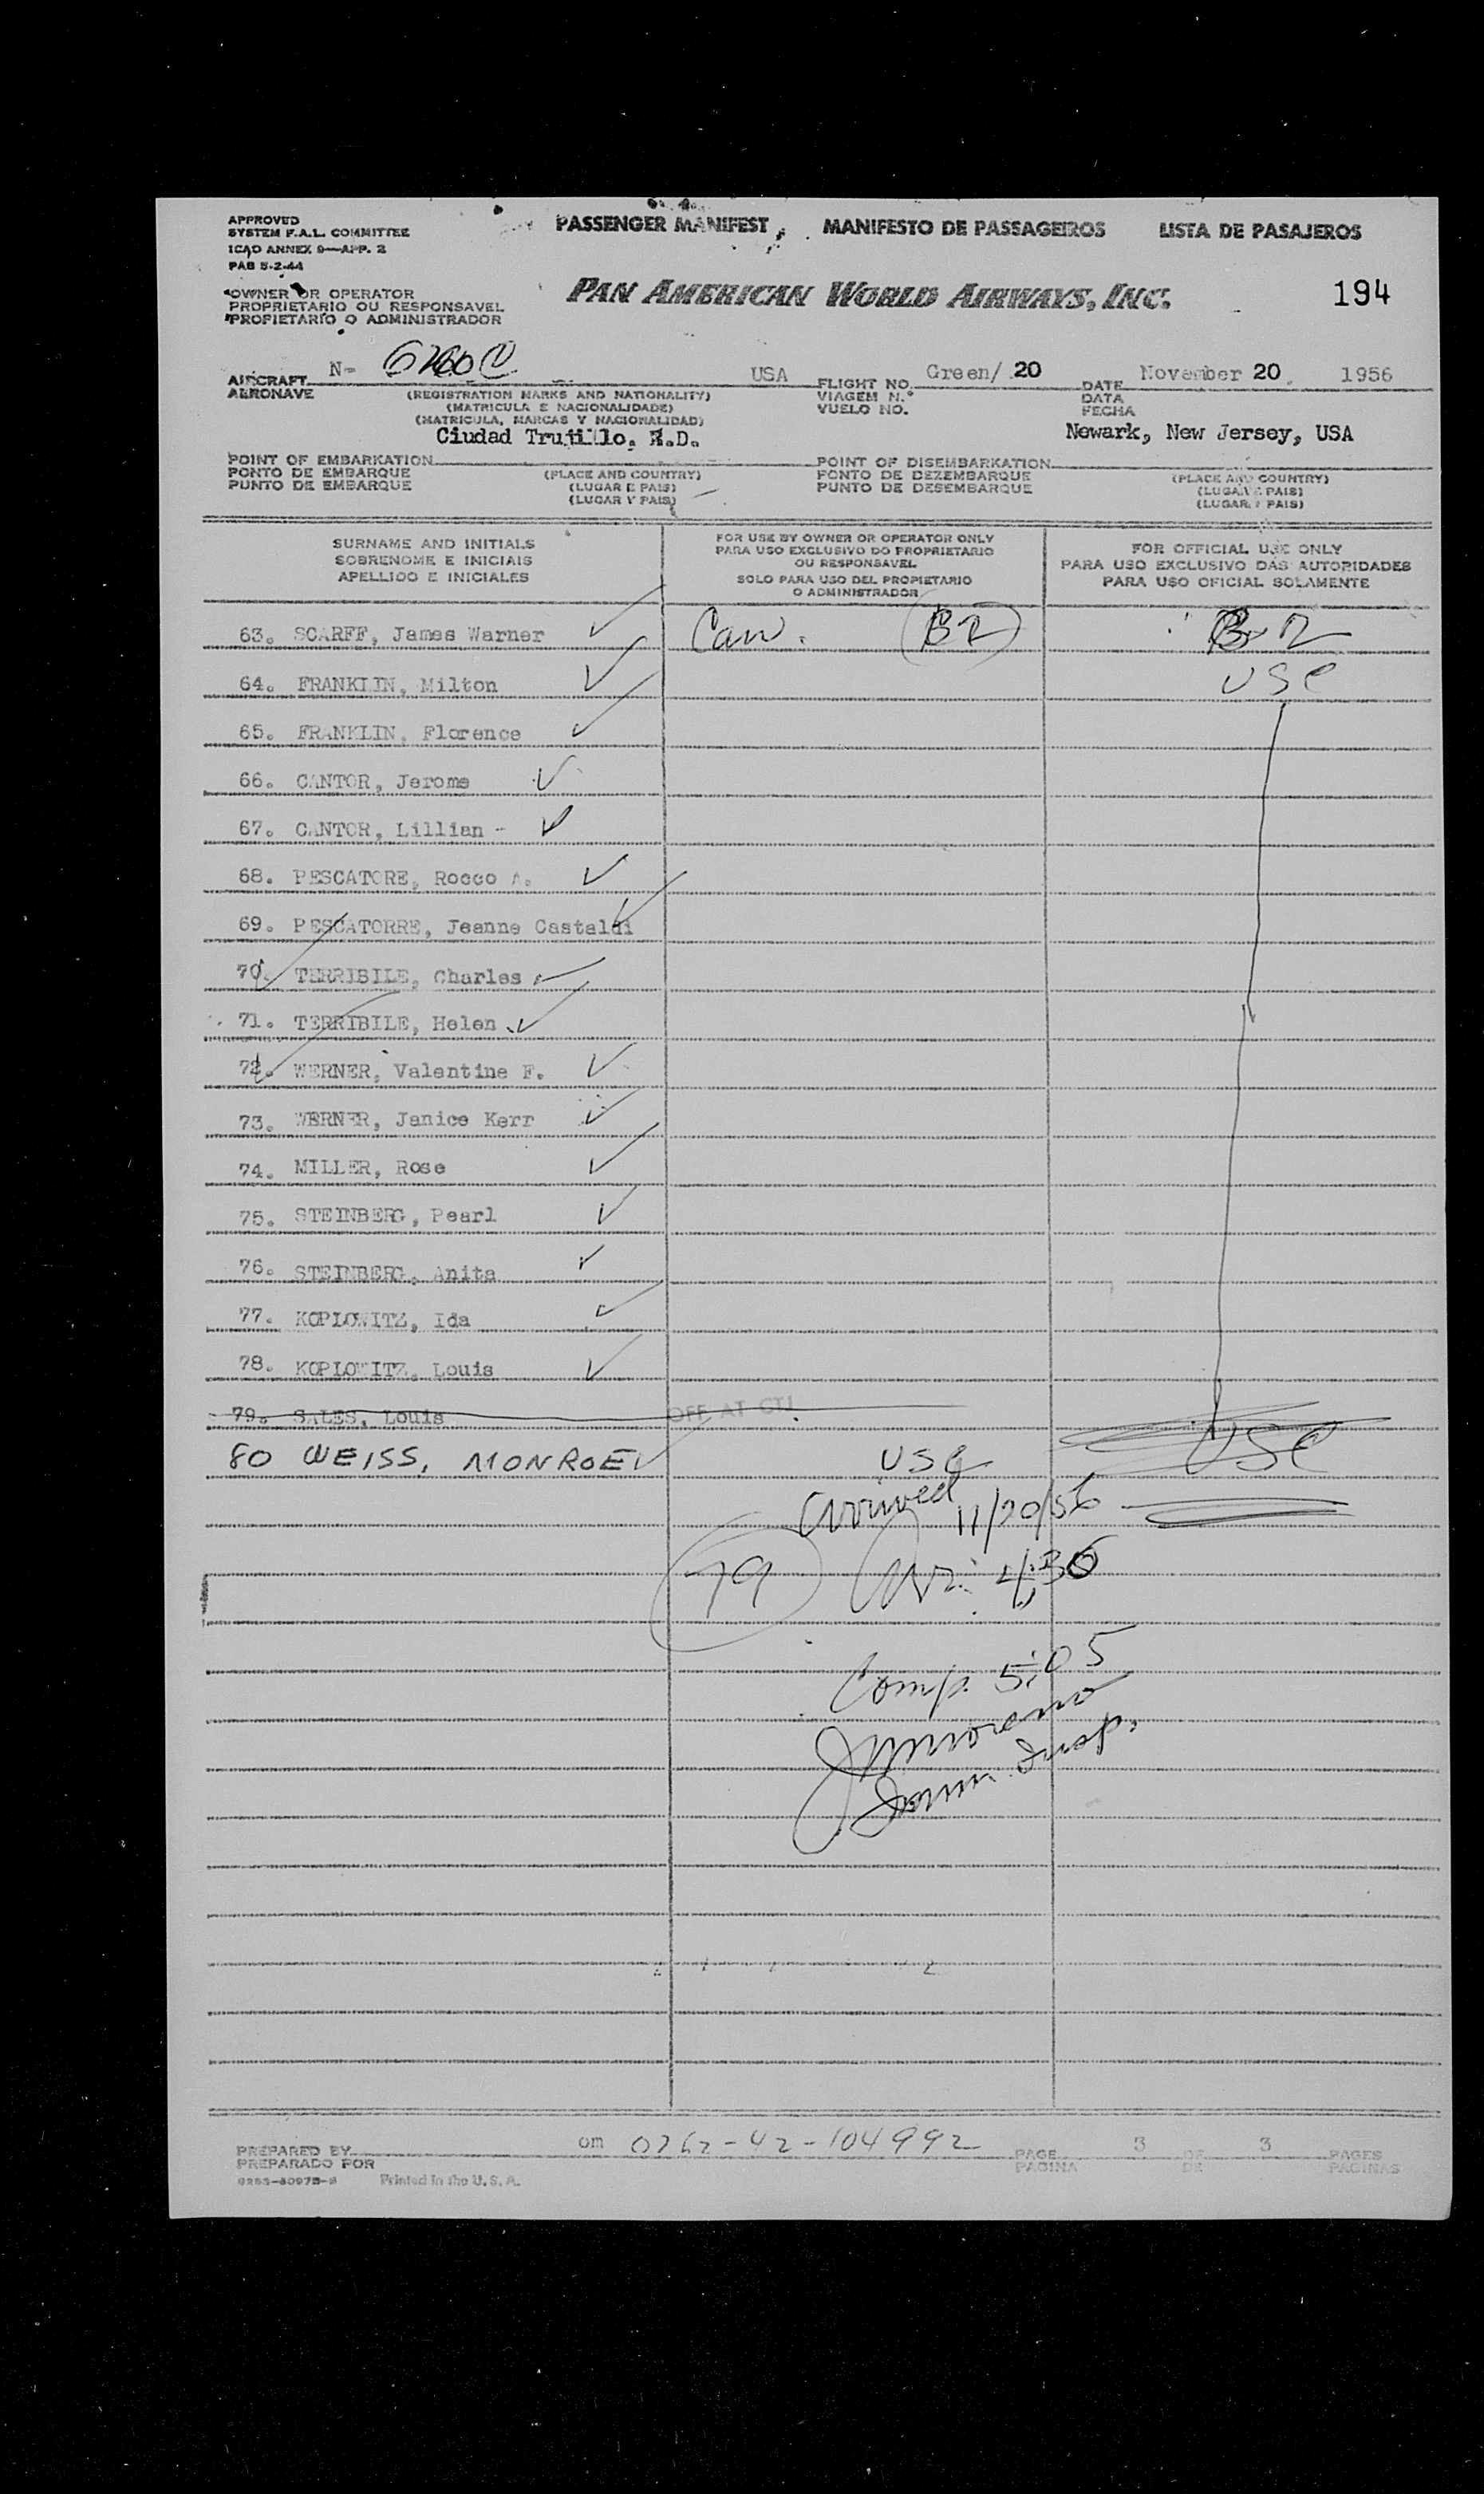 APPROVED
SYSTEM F.A.L. COMMITTEE
ICAO ANNEX 9—APP. 2
PAB 5-2-44
PASSENGER MANIFEST, MANIFESTO DE PASSAGEIROS LISTA DE PASAJEROS
OWNER OR OPERATOR
PROPRIETARIO OU RESPONSAVEL
PROPIETARIO O ADMINISTRADOR
PAN AMERICAN WORLD AIRWAYS, INC.
194
AIRCRAFT N- USA FLIGHT NO. Green/ 20 DATE November 20, 1956
AERONAVE (REGISTRATION MARKS AND NATIONALITY) VIAGEM N.º DATA
(MATRICULA E NACIONALIDADE) VUELO NO. FECHA
(MATRICULA, MARCAS Y NACIONALIDAD)
Ciudad Trujillo, R.D. Newark, New Jersey, USA
POINT OF EMBARKATION POINT OF DISEMBARKATION
PONTO DE EMBARQUE (PLACE AND COUNTRY) PONTO DE DEZEMBARQUE (PLACE AND COUNTRY)
PUNTO DE EMBARQUE (LUGAR E PAIS) PUNTO DE DESEMBARQUE (LUGAR E PAIS)
(LUGAR Y PAIS) (LUGAR Y PAIS)
SURNAME AND INITIALS
SOBRENOME E INICIAIS
APELLIDO E INICIALES
FOR USE BY OWNER OR OPERATOR ONLY
PARA USO EXCLUSIVO DO PROPRIETARIO
OU RESPONSAVEL
SOLO PARA USO DEL PROPIETARIO
O ADMINISTRADOR
FOR OFFICIAL USE ONLY
PARA USO EXCLUSIVO DAS AUTORIDADES
PARA USO OFICIAL SOLAMENTE
63. SCARFF, James Warner Can. (B2) B-2
64. FRANKLIN, Milton USC
65. FRANKLIN, Florence
66. CANTOR, Jerome
67. CANTOR, Lillian -
68. PESCATORE, Rocco A.
69. PESCATORRE, Jeanne Castaldi
70. TERRIBILE, Charles
71. TERRIBILE, Helen
72. WERNER, Valentine F.
73. WERNER, Janice Kerr
74. MILLER, Rose
75. STEINBERG, Pearl
76. STEINBERG, Anita
77. KOPLOWITZ, Ida
78. KOPLOWITZ, Louis
79. SALES, Louis OFF AT CTJ
80 WEISS, MONROE USC USC
Arrived 11/20/56
79 Arr: 4:30
Comp. 5:05
Imm. Insp.
PREPARED BY om 0262-42-104992 PAGE 3 OF 3 PAGES
PREPARADO POR PAGINA DE PAGINAS
Printed in the U.S.A.